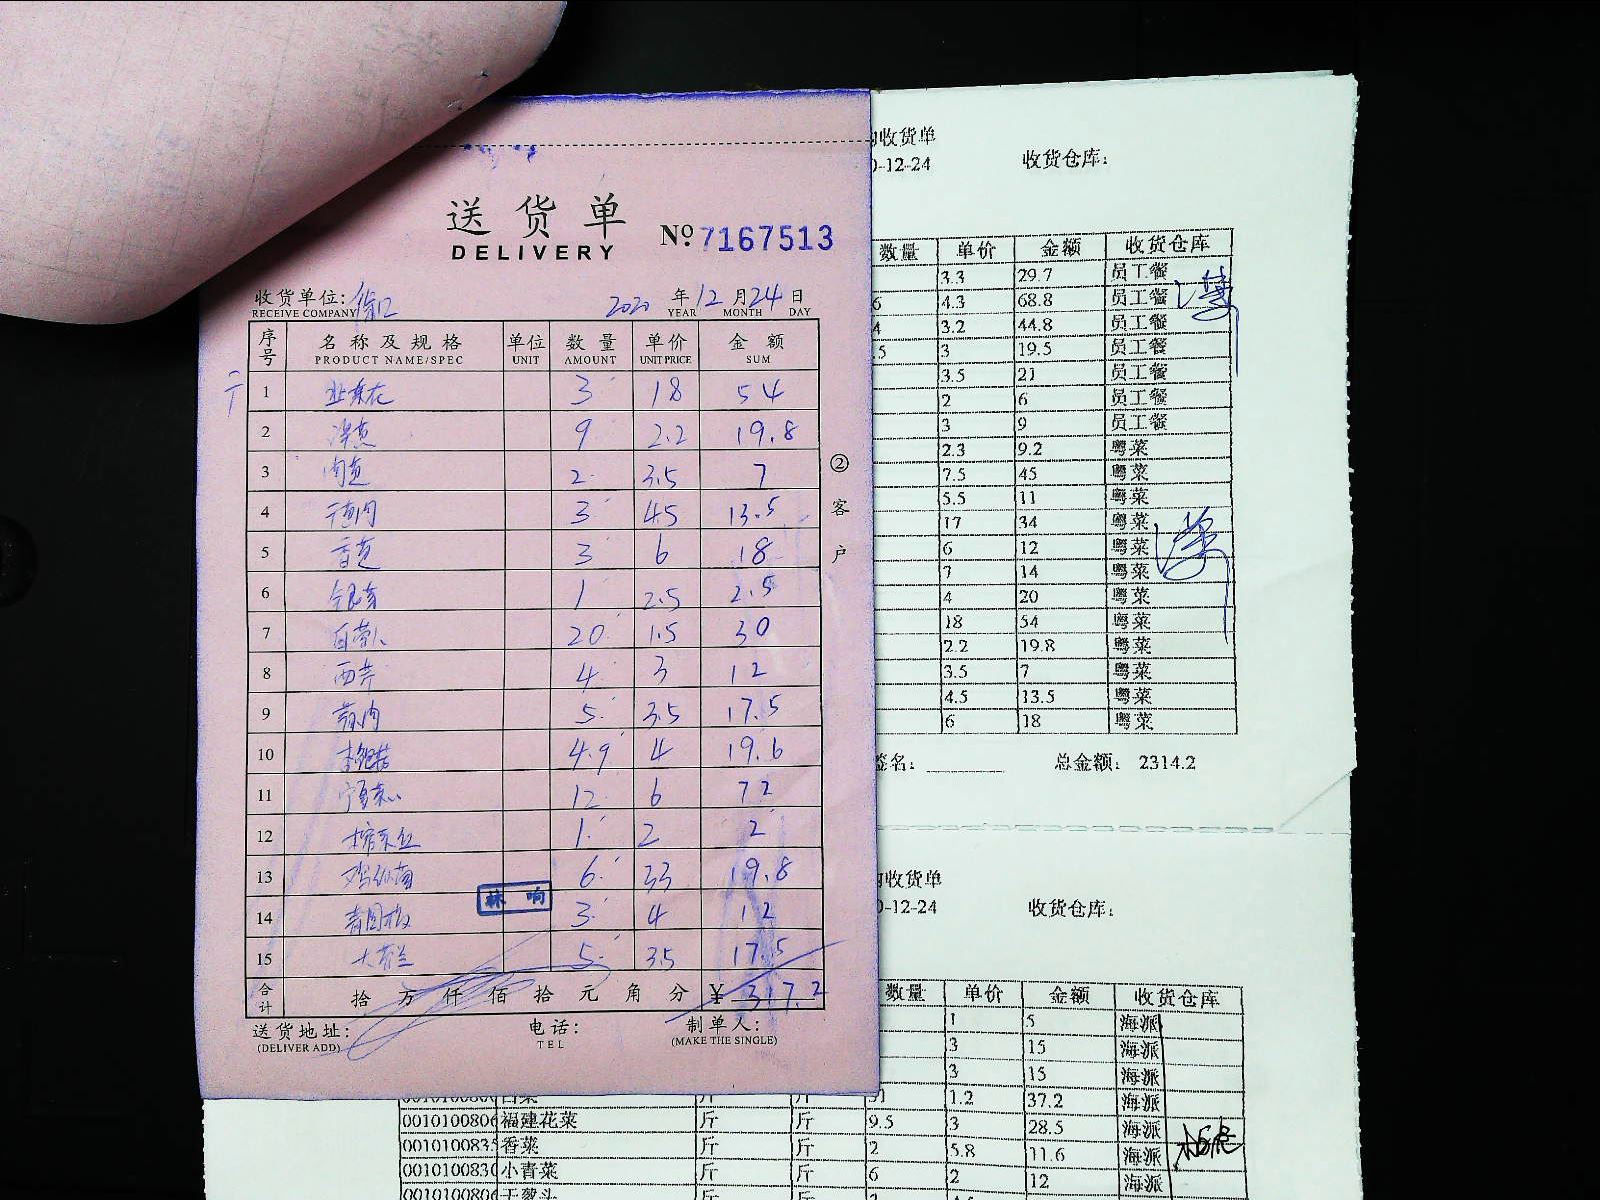 送货单
DELIVERY
№ 7167513
收货单位: 徐汇 2020 年 12 月 24 日
RECEIVE COMPANY YEAR MONTH DAY
序号 名称及规格 单位 数量 单价 金额
PRODUCT NAME/SPEC UNIT AMOUNT UNIT PRICE SUM
1 韭菜花 3 18 54
2 洋葱 9 2.2 19.8
3 2 3.5 7
4 3 4.5 13.5
5 3 6 18
6 1 2.5 2.5
7 20 1.5 30
8 西芹 4 3 12
9 5 3.5 17.5
10 4.9 4 19.6
11 12 6 72
12 1 2 2
13 6 33 19.8
14 青园椒 3 4 12
15 大芥兰 5 3.5 17.5
林 响
合计 拾 万 仟 佰 拾 元 角 分 ¥ 317.2
送货地址: 电话: 制单人:
(DELIVER ADD) TEL (MAKE THE SINGLE)
②客户
收货单
0-12-24 收货仓库:
数量 单价 金额 收货仓库
3.3 29.7 员工餐
6 4.3 68.8 员工餐
4 3.2 44.8 员工餐
.5 3 19.5 员工餐
3.5 21 员工餐
2 6 员工餐
3 9 员工餐
2.3 9.2 粤菜
7.5 45 粤菜
5.5 11 粤菜
17 34 粤菜
6 12 粤菜
7 14 粤菜
4 20 粤菜
18 54 粤菜
2.2 19.8 粤菜
3.5 7 粤菜
4.5 13.5 粤菜
6 18 粤菜
签名: 总金额: 2314.2
收货单
0-12-24 收货仓库:
数量 单价 金额 收货仓库
1 5 海派
3 15 海派
3 15 海派
白菜 斤 斤 31 1.2 37.2 海派
0010100806 福建花菜 斤 斤 9.5 3 28.5 海派
001010083 香菜 斤 斤 2 5.8 11.6 海派
001010083 小青菜 斤 斤 6 2 12 海派
0010100806 干葱头 斤 斤